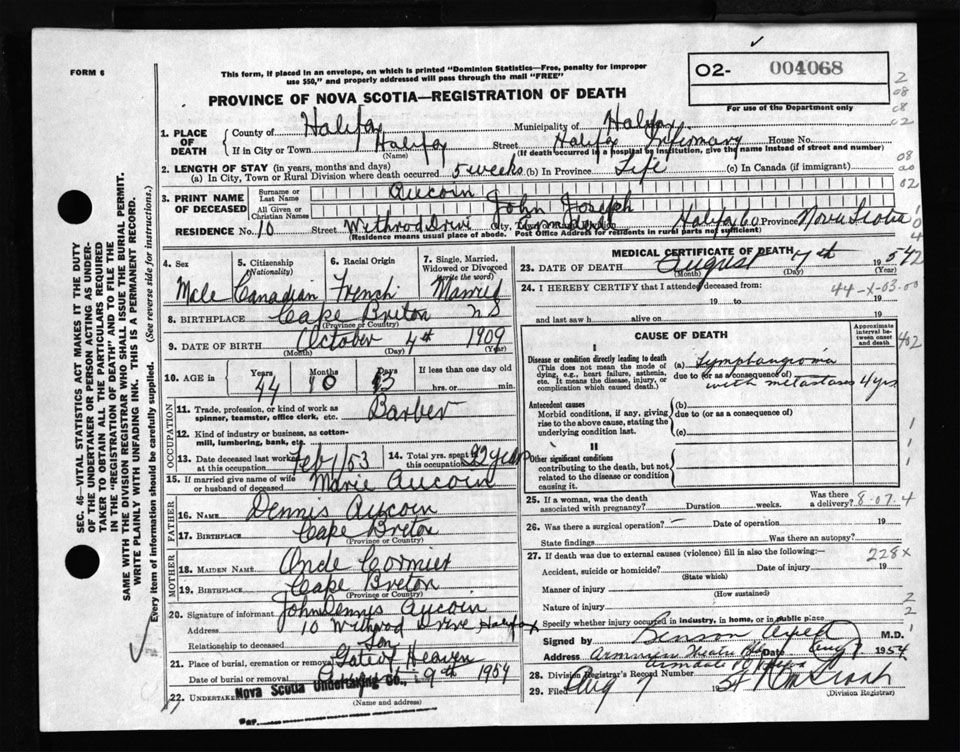 FORM 6
This form, if placed in an envelope, on which is printed "Dominion Statistics—Free, penalty for improper
use $50," and properly addressed will pass through the mail "FREE"
02- 004068
For use of the Department only
PROVINCE OF NOVA SCOTIA—REGISTRATION OF DEATH
1. PLACE OF DEATH
County of Halifax Municipality of Halifax
If in City or Town Halifax Street Halifax Infirmary House No.
(Name) (If death occurred in a hospital or institution, give the name instead of street and number)
2. LENGTH OF STAY (in years, months and days)
(a) In City, Town or Rural Division where death occurred 5 weeks (b) In Province Life (c) In Canada (if immigrant)
3. PRINT NAME OF DECEASED
Surname or Last Name Aucoin
All Given or Christian Names John Joseph
RESIDENCE No. 10 Street Withrod Drive Halifax Co. Province Nova Scotia
(Residence means usual place of abode. Post Office Address for residents in rural parts not sufficient)
4. Sex 5. Citizenship (Nationality) 6. Racial Origin 7. Single, Married, Widowed or Divorced (write the word)
Male Canadian French Married
8. BIRTHPLACE Cape Breton NS
(Province or Country)
9. DATE OF BIRTH October 4th 1909
(Month) (Day) (Year)
10. AGE in Years Months Days If less than one day old
44 10 3 hrs. or min.
OCCUPATION
11. Trade, profession, or kind of work as spinner, teamster, office clerk, etc. Barber
12. Kind of industry or business, as cotton-mill, lumbering, bank, etc.
13. Date deceased last worked at this occupation Feb 1/53
14. Total yrs. spent in this occupation 22 years
15. If married give name of wife or husband of deceased Marie Aucoin
FATHER
16. NAME Dennis Aucoin
17. BIRTHPLACE Cape Breton
(Province or Country)
MOTHER
18. MAIDEN NAME Cormier
19. BIRTHPLACE Cape Breton
(Province or Country)
20. Signature of informant John Dennis Aucoin
Address 10 Withrod Drive Halifax
Relationship to deceased Son
21. Place of burial, cremation or removal Gate of Heaven
Date of burial or removal 9th 1954
22. UNDERTAKER Nova Scotia Undertaking Co.,
(Name and address)
MEDICAL CERTIFICATE OF DEATH
23. DATE OF DEATH August 7th 1954
(Month) (Day)
24. I HEREBY CERTIFY that I attended deceased from:
44-X-03-00
19 to 19
and last saw h alive on 19
CAUSE OF DEATH
Approximate interval between onset and death
I
Disease or condition directly leading to death
(This does not mean the mode of dying, e.g., heart failure, asthenia, etc. It means the disease, injury, or complication which caused death.)
(a) Lymphangioma
due to (or as a consequence of)
with metastases 4 yrs
Antecedent causes
Morbid conditions, if any, giving rise to the above cause, stating the underlying condition last.
(b)
due to (or as a consequence of)
(c)
II
Other significant conditions
contributing to the death, but not related to the disease or condition causing it.
25. If a woman, was the death associated with pregnancy? Duration weeks. Was there a delivery?
8-07-4
26. Was there a surgical operation? — Date of operation 19
State findings Was there an autopsy?
27. If death was due to external causes (violence) fill in also the following:—
228X
Accident, suicide or homicide? Date of injury 19
(State which)
Manner of injury
(How sustained)
Nature of injury
Specify whether injury occurred in industry, in home, or in public place
Signed by Benson M.D.
Address Date Aug 7 1954
28. Division Registrar's Record Number
29. Filed Aug 7 54
(Division Registrar)
SEC. 46—VITAL STATISTICS ACT MAKES IT THE DUTY
OF THE UNDERTAKER OR PERSON ACTING AS UNDER-
TAKER TO OBTAIN ALL THE PARTICULARS REQUIRED
IN THE "REGISTRATION OF DEATH" AND TO FILE THE
SAME WITH THE DIVISION REGISTRAR WHO SHALL ISSUE THE BURIAL PERMIT.
WRITE PLAINLY WITH UNFADING INK. THIS IS A PERMANENT RECORD.
Every item of information should be carefully supplied. (See reverse side for instructions.)